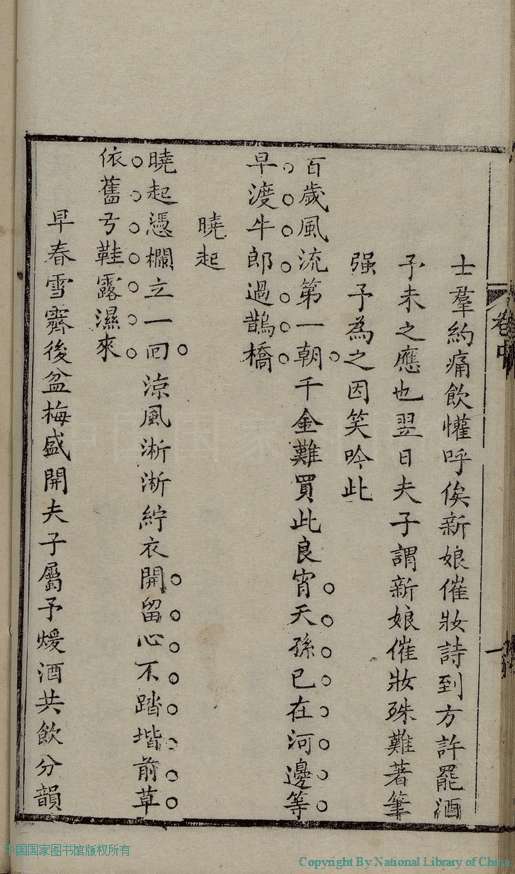 士羣約痛飲懽呼俟新娘催妝詩到方許罷酒
予未之應也翌日夫子謂新娘催妝殊難著筆
强予為之因笑吟此
百歲風流第一朝千金難買此良宵天孫已在河邊等
早渡牛郎過鵲橋
曉起
曉起憑欄立一回涼風淅淅紵衣開留心不踏堦前草
依舊弓鞋露濕來
早春雪霽後盆梅盛開夫子屬予煖酒共飲分韻
卷中
国国家图书馆版权所有
Copyright By National Library of China